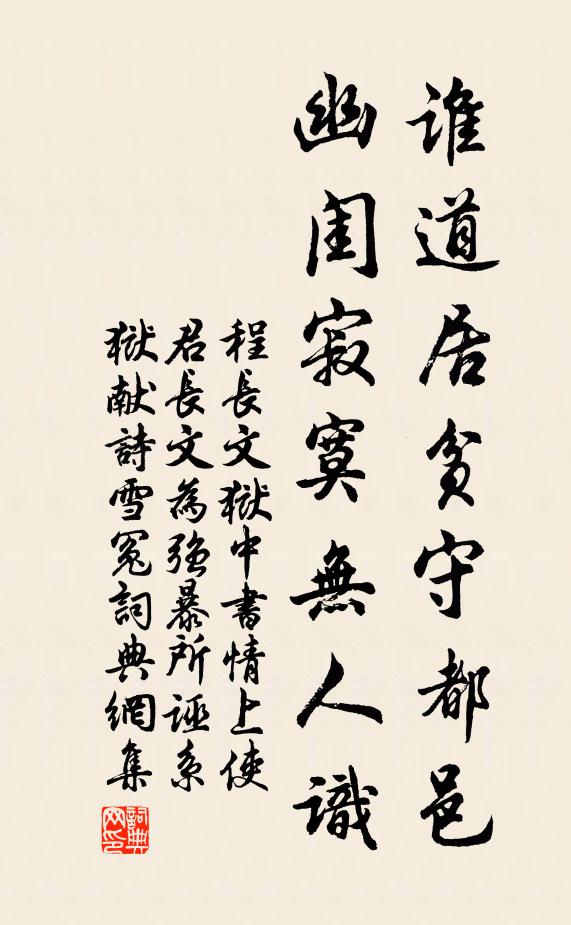 誰道居貧守都邑
幽閨寂寞無人識
程長文獄中書情上使
君長文為強暴所誣系
獄獻詩雪冤詞典網集
詞典网印